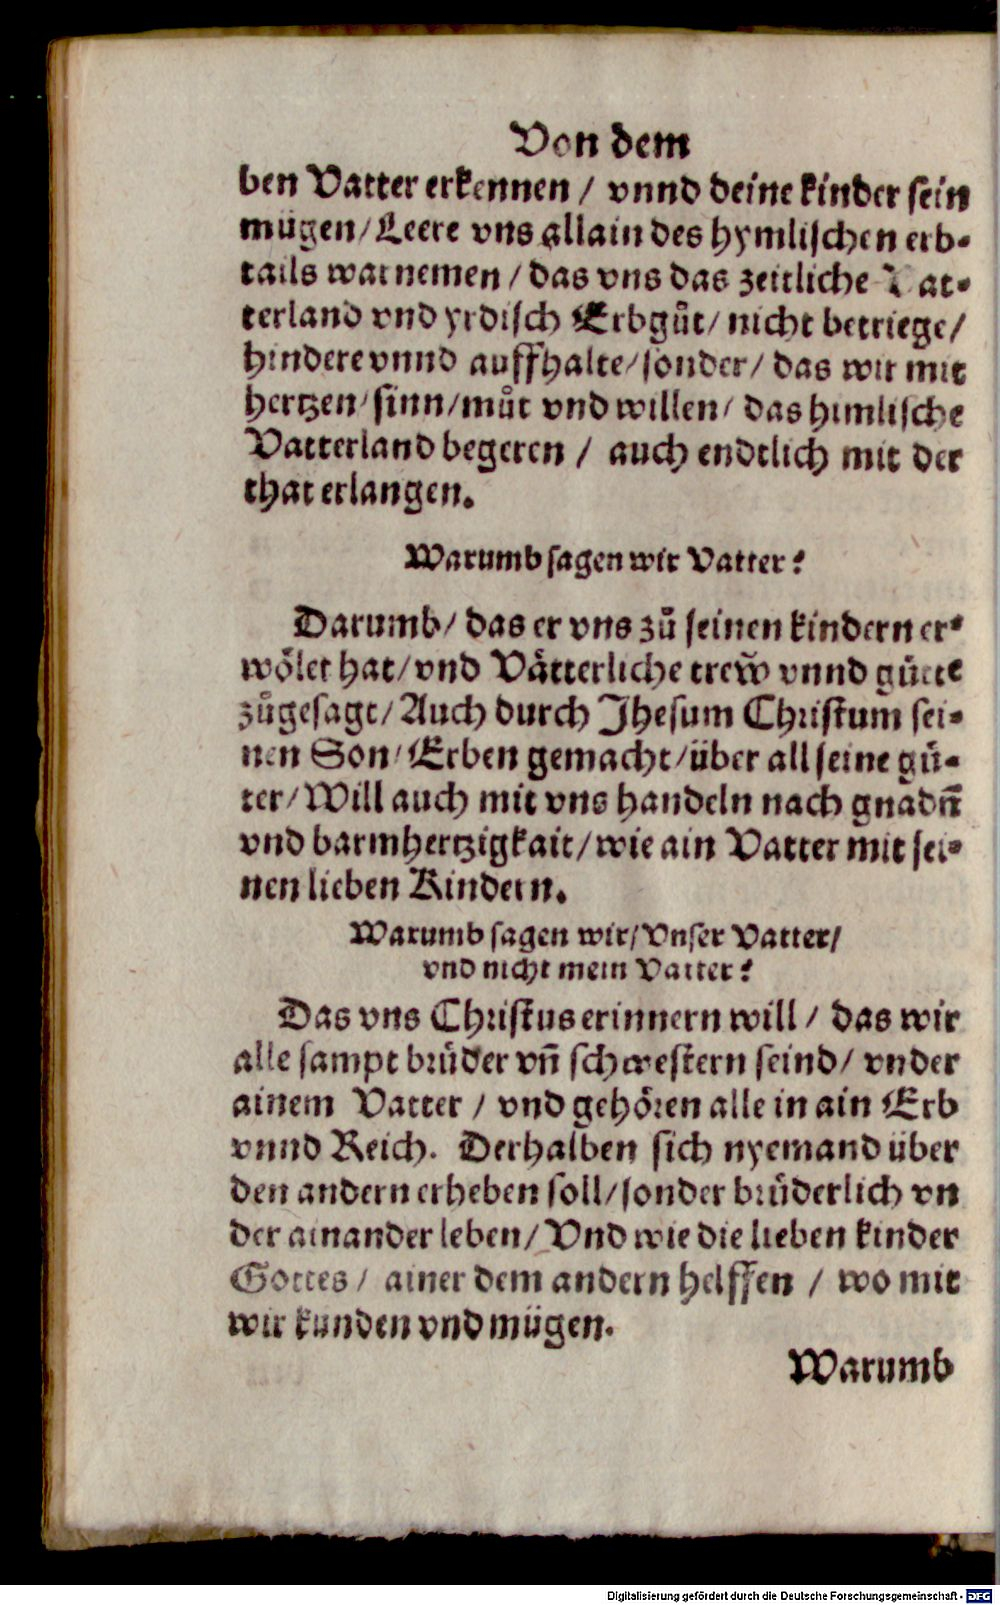 Von dem
ben Vatter erkennen / vnnd deine kinder sein
mügen/ Leere vns allain des hymlischen erb-
tails warnemen / das vns das zeitliche Vat-
terland vnd yrdisch Erbgůt/ nicht betriege/
hindere vnnd auffhalte/ sonder/ das wir mit
hertzen/ sinn/ můt vnd willen/ das himlische
Vatterland begeren / auch endtlich mit der
that erlangen.
Warumb sagen wir Vatter?
Darumb/ das er vns zů seinen kindern er-
wölet hat/ vnd Vätterliche trew̃ vnnd gütte
zůgesagt/ Auch durch Jhesum Christum sei-
nen Son/ Erben gemacht/ über all seine gü-
ter/ Will auch mit vns handeln nach gnadñ
vnd barmhertzigkait/ wie ain Vatter mit sei-
nen lieben Kindern.
Warumb sagen wir/ Vnser Vatter/
vnd nicht mein Vatter?
Das vns Christus erinnern will / das wir
alle sampt brüder vñ schwestern seind/ vnder
ainem Vatter / vnd gehören alle in ain Erb
vnnd Reich. Derhalben sich nyemand über
den andern erheben soll/ sonder brüderlich vn
der ainander leben/ Vnd wie die lieben kinder
Gottes / ainer dem andern helffen / wo mit
wir kunden vnd mügen.
Warumb
Digitalisierung gefördert durch die Deutsche Forschungsgemeinschaft - DFG